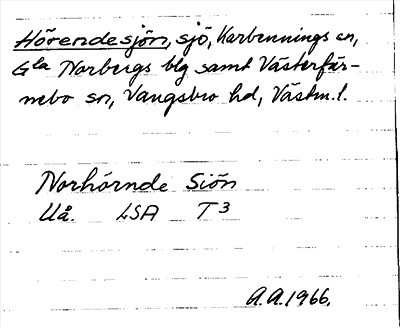 Hörendesjön, sjö, Karbennings sn,
Gla Norbergs blg samt Västerfär-
nebo sn, Vangsbro hd, Västm.l.
Norhörnde Siön
Uå. LSA T3
A.A.1966.